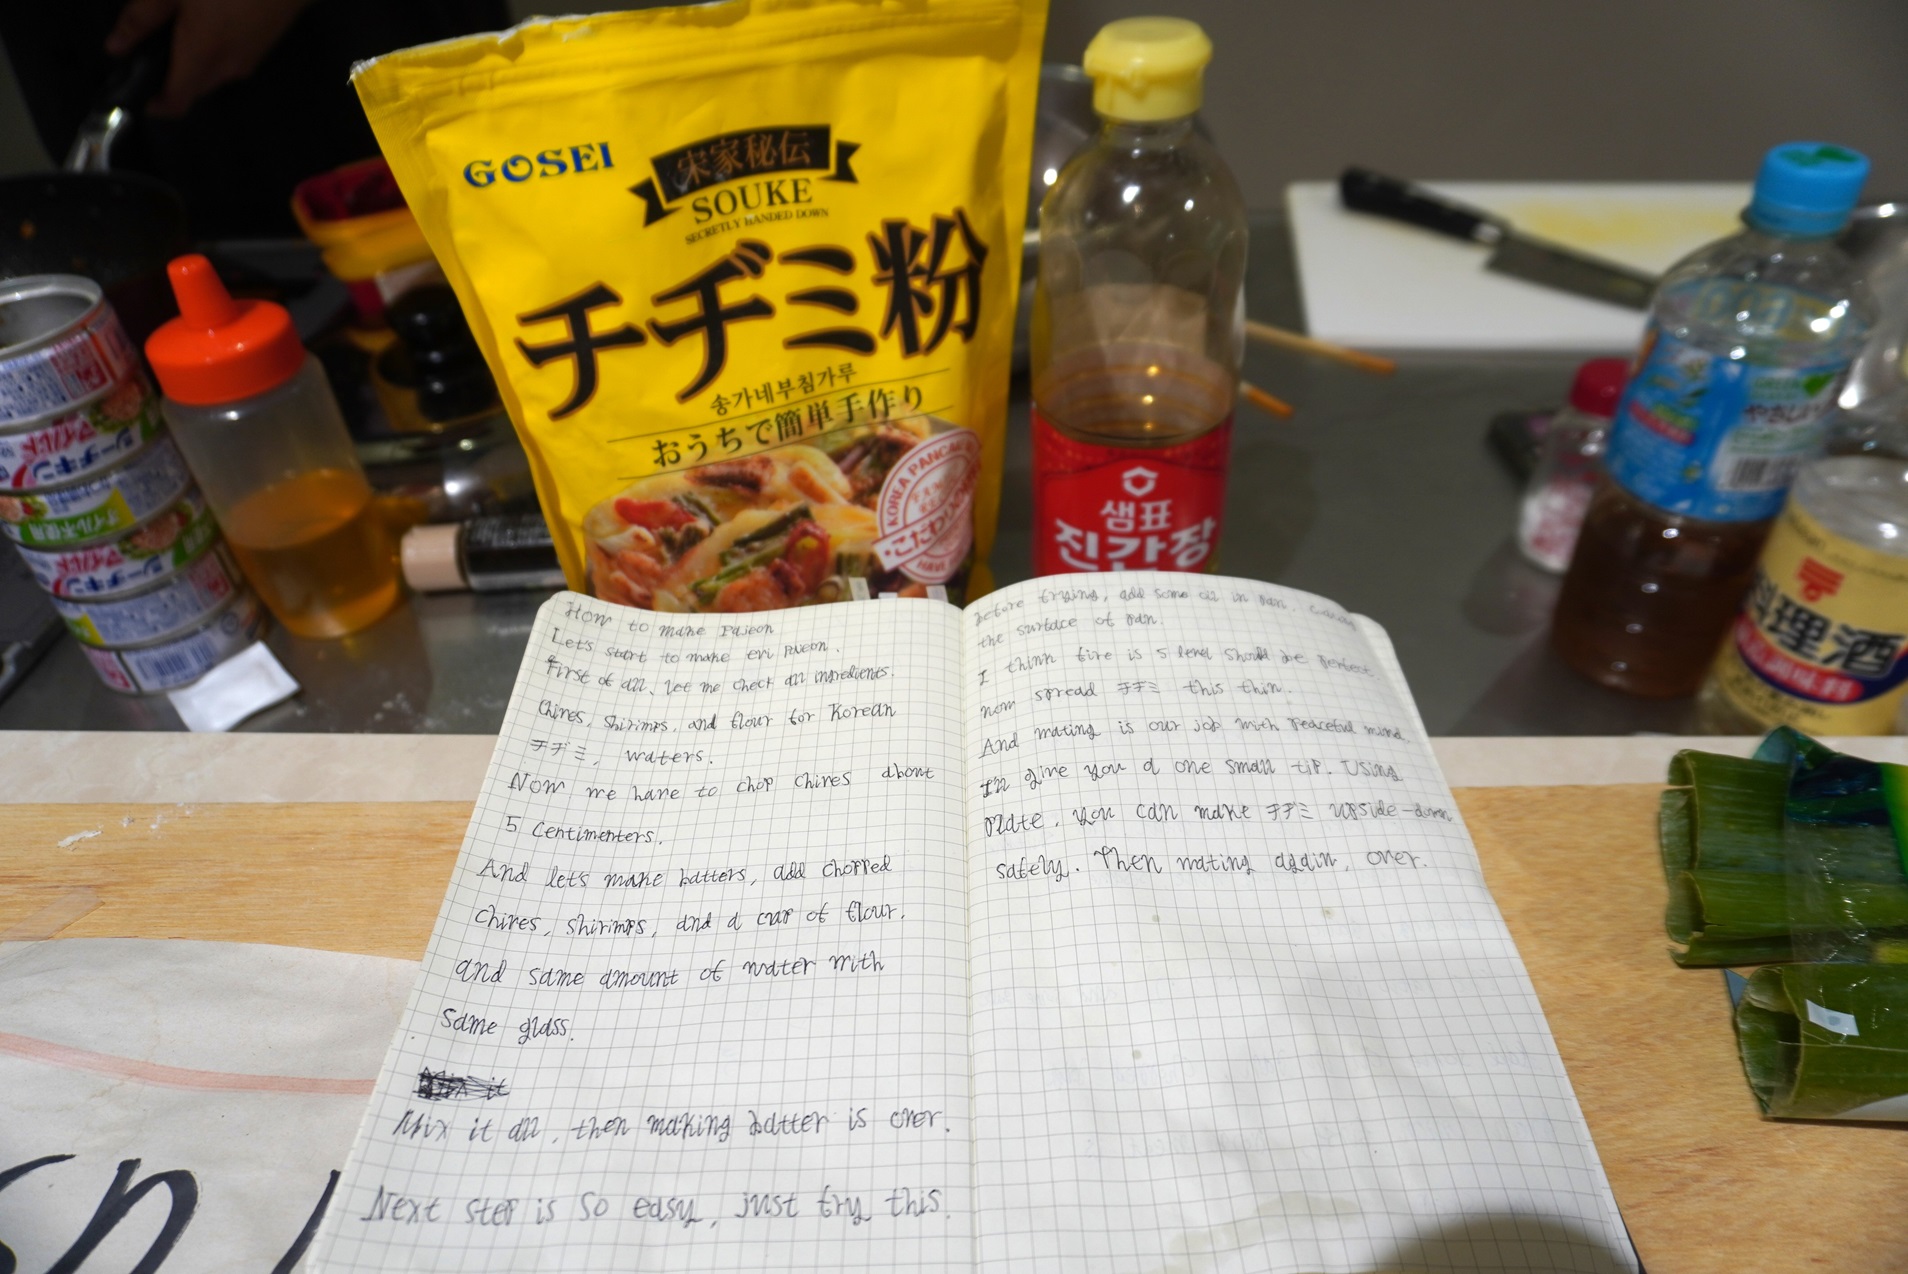 GOSEI
宋家秘伝
SOUKE
SECRETLY HANDED DOWN
チヂミ粉
송가네부침가루
おうちで簡単手作り
KOREA PANCAKE
こだわり
샘표
진간장
シーチキン
マイルド
オイル不使用
シーチキン
マイルド
やさしい
料理酒
How to make Pajeon
Let's start to make eri Pajeon.
First of all, let me check all ingredients.
Chives, shirimps, and flour for Korean
チヂミ, waters.
Now we have to chop chives about
5 centimenters.
And let's make batters, add chopped
chives, shirimps, and a cup of flour.
and same amount of water with
same glass.
Mix it
Mix it all, then making batter is over.
Next step is so easy, just try this.
Before frying, add some oil in pan.
the surface of pan.
I think fire is 5 level should be perfect
now spread チヂミ this thin.
And wating is our job with peaceful mind.
I'll give you a one small tip. Using
plate. you can make チヂミ upside-down
safely. Then wating again, over.